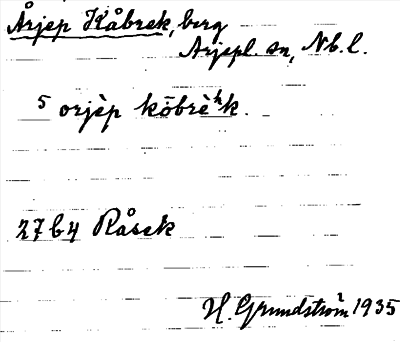 Årjep Kåbrek, berg
Arjepl. sn, Nb. l.
5 orjèp kōbrèʰk.
27 b 4 Råsek
H. Grundström 1935